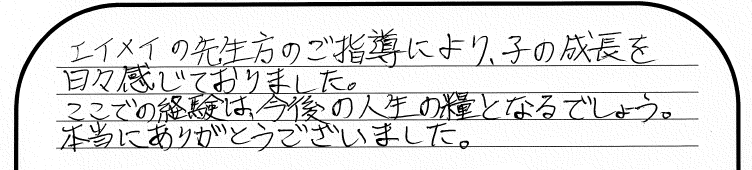 エイメイの先生方のご指導により、子の成長を
日々感じておりました。
ここでの経験は、今後の人生の糧となるでしょう。
本当にありがとうございました。